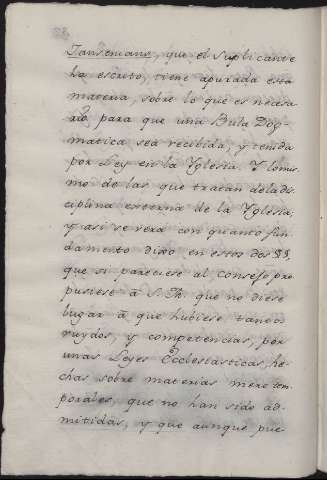 Janseniana, que el Suplicante
ha escrito, tiene apurada esta
materia, sobre lo que es necesa
rio para que una Bula Dog-
matica sea recibida, y tenida
por Ley en la Yglesia. Y lo mis
mo de las que tratan de la dis
ciplina externa de la Yglesia;
y asi se verá con quanto fun
damento dixo en estos dos §§.
que si pareciese al Consejo pro
pusiese á S. M. que no diese
lugar á que hubiese tantos
ruydos, y competencias, por
unas Leyes Ecclesiasticas, he-
chas sobre materias mere tem
porales, que no han sido ad-
mitidas, y que aunque pue-